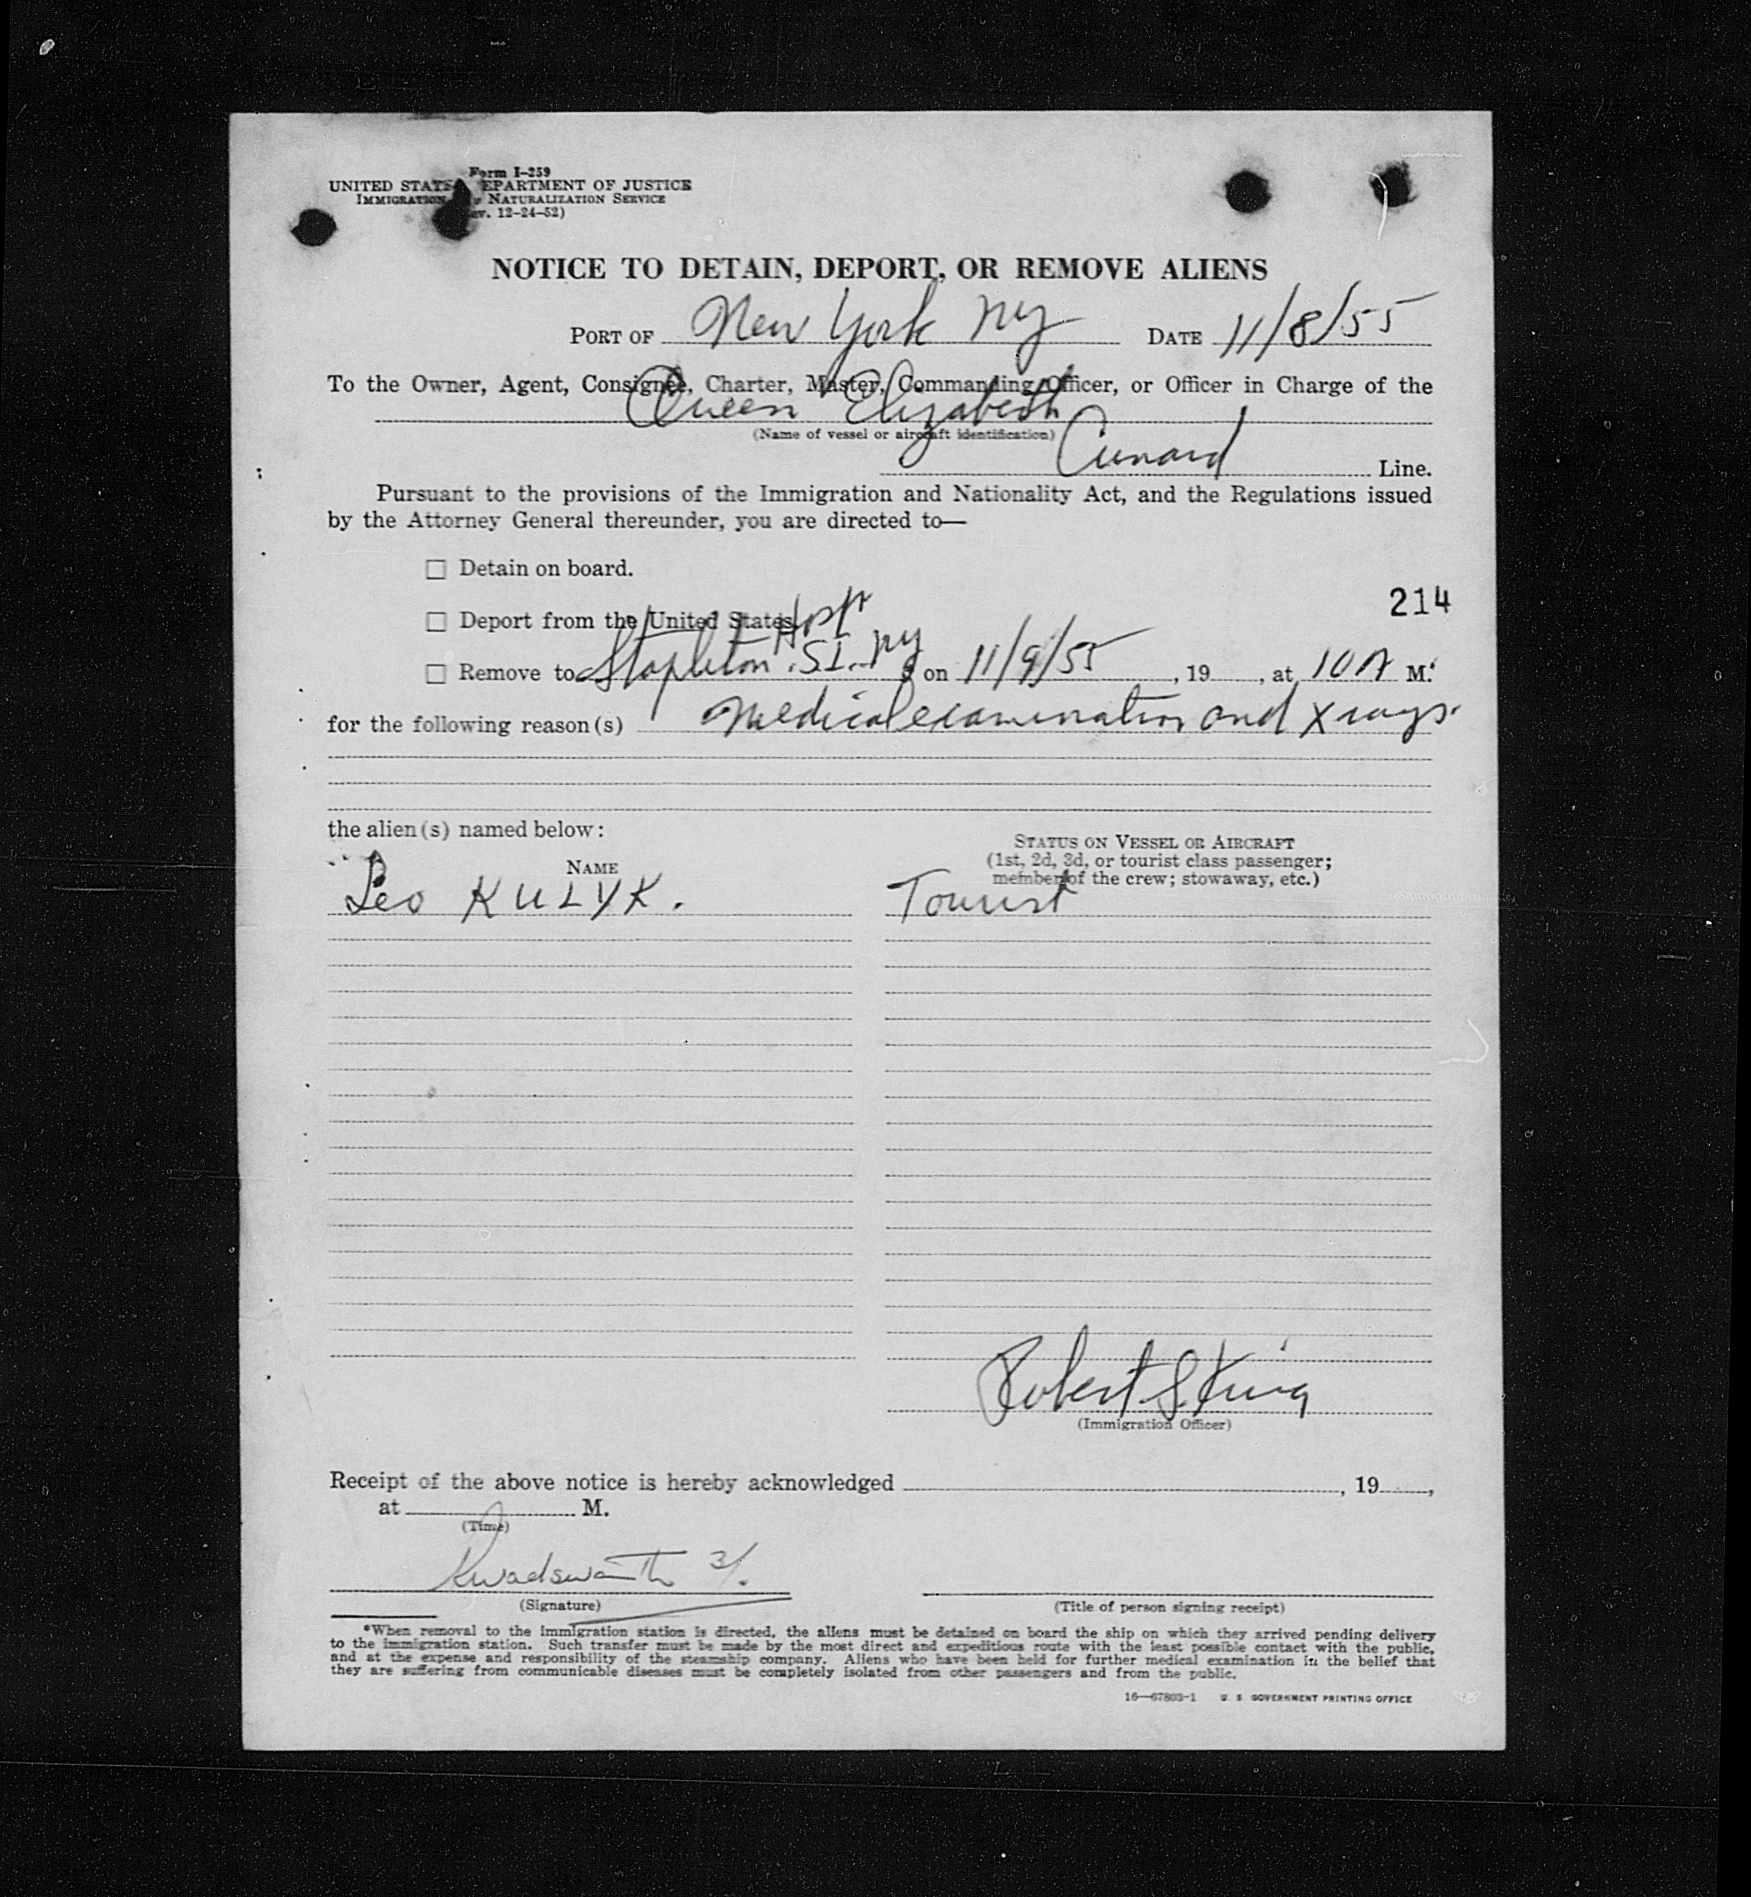 Form I-259
UNITED STATES DEPARTMENT OF JUSTICE
IMMIGRATION NATURALIZATION SERVICE
ev. 12-24-52)
NOTICE TO DETAIN, DEPORT, OR REMOVE ALIENS
PORT OF New York NY DATE 11/8/55
To the Owner, Agent, Consignee, Charter, Master, Commanding Officer, or Officer in Charge of the
Queen Elizabeth
(Name of vessel or aircraft identification)
Cunard Line.
Pursuant to the provisions of the Immigration and Nationality Act, and the Regulations issued
by the Attorney General thereunder, you are directed to—
☐ Detain on board.
214
☐ Deport from the United States.
☐ Remove to Stapleton Hospt S.I. NY on 11/9/55, 19, at 10 A M.*
for the following reason(s) Medical examination and X rays.
the alien(s) named below:
NAME
STATUS ON VESSEL OR AIRCRAFT
(1st, 2d, 3d, or tourist class passenger;
member of the crew; stowaway, etc.)
Leo KULYK. Tourist
Robert S. King
(Immigration Officer)
Receipt of the above notice is hereby acknowledged , 19 ,
at M.
(Time)
Kwadsworth 3/.
(Signature)
(Title of person signing receipt)
*When removal to the immigration station is directed, the aliens must be detained on board the ship on which they arrived pending delivery
to the immigration station. Such transfer must be made by the most direct and expeditious route with the least possible contact with the public,
and at the expense and responsibility of the steamship company. Aliens who have been held for further medical examination in the belief that
they are suffering from communicable diseases must be completely isolated from other passengers and from the public.
16—67803-1 U. S. GOVERNMENT PRINTING OFFICE